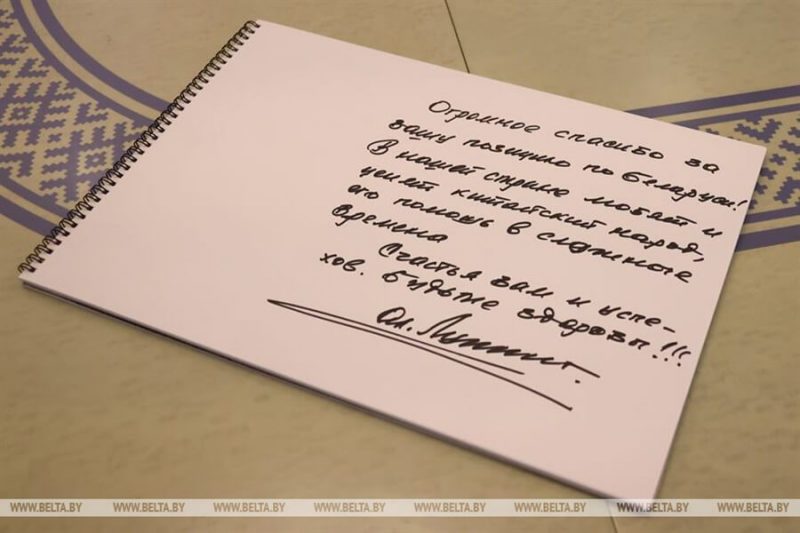 Огромное спасибо за
вашу позицию по Беларуси!
В нашей стране любят и
ценят китайский народ,
его помощь в сложные
времена
Счастья вам и успе-
хов. Будьте здоровы!!!
WWW.BELTA.BY WWW.BELTA.BY WWW.BELTA.BY WWW.BELTA.BY WWW.BELTA.BY WWW.BELTA.BY WWW.BELTA.BY WWW.BELTA.BY